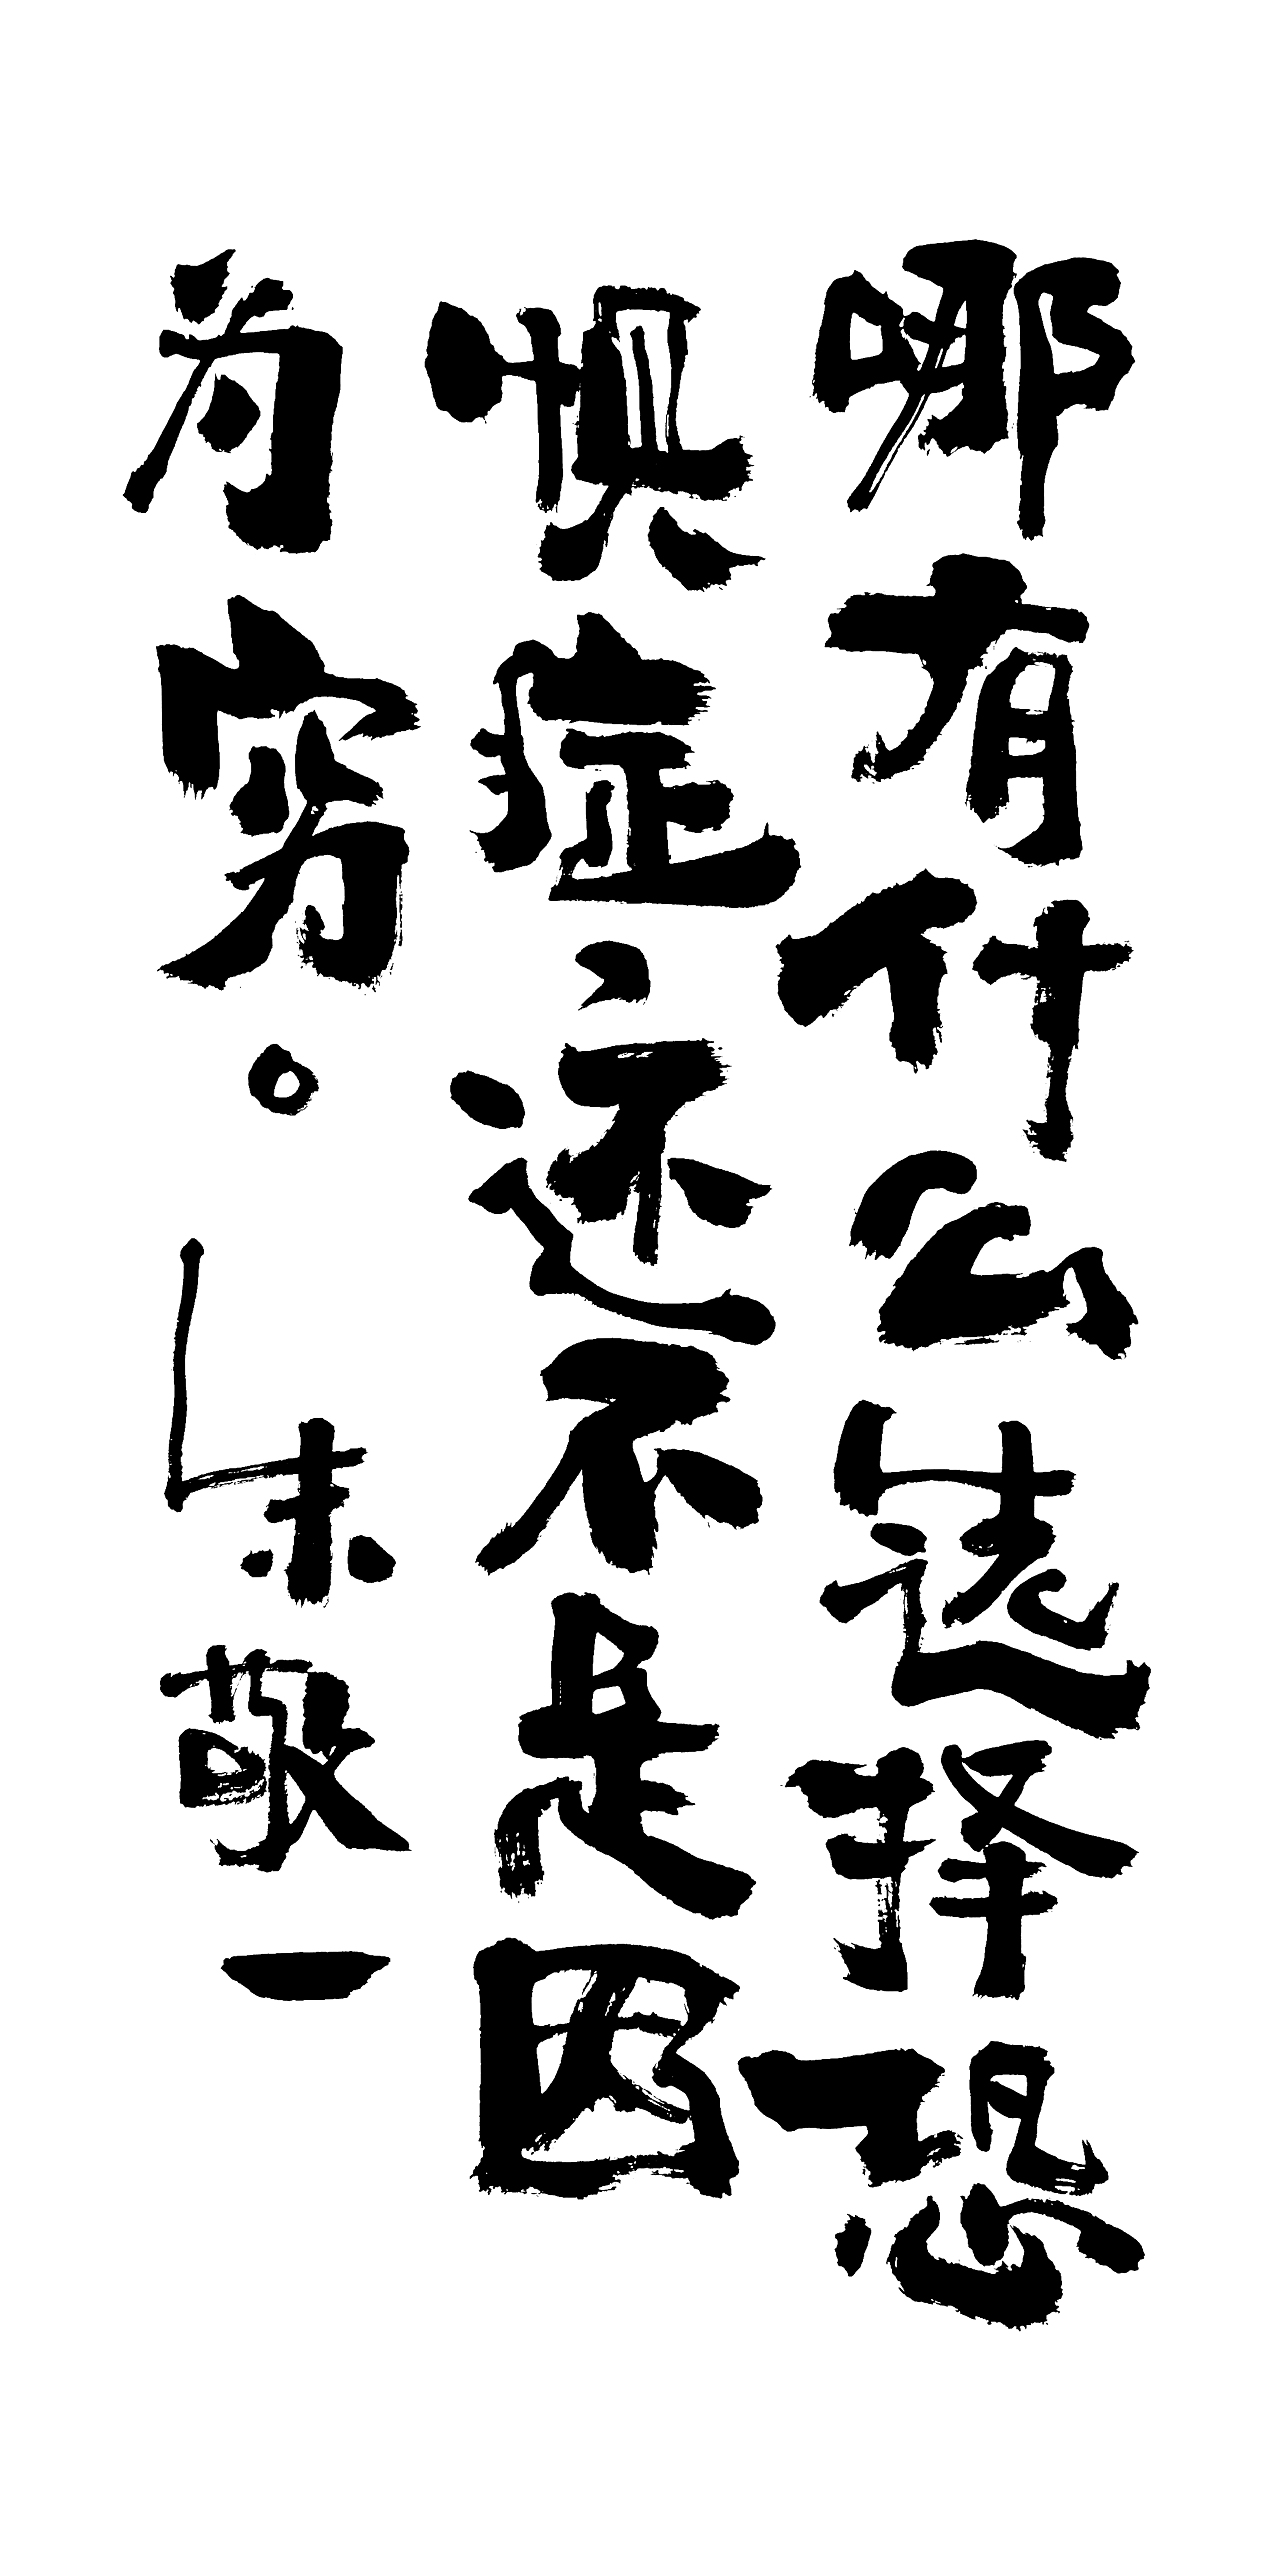 哪有什么选择恐
惧症，还不是因
为穷。朱敬一